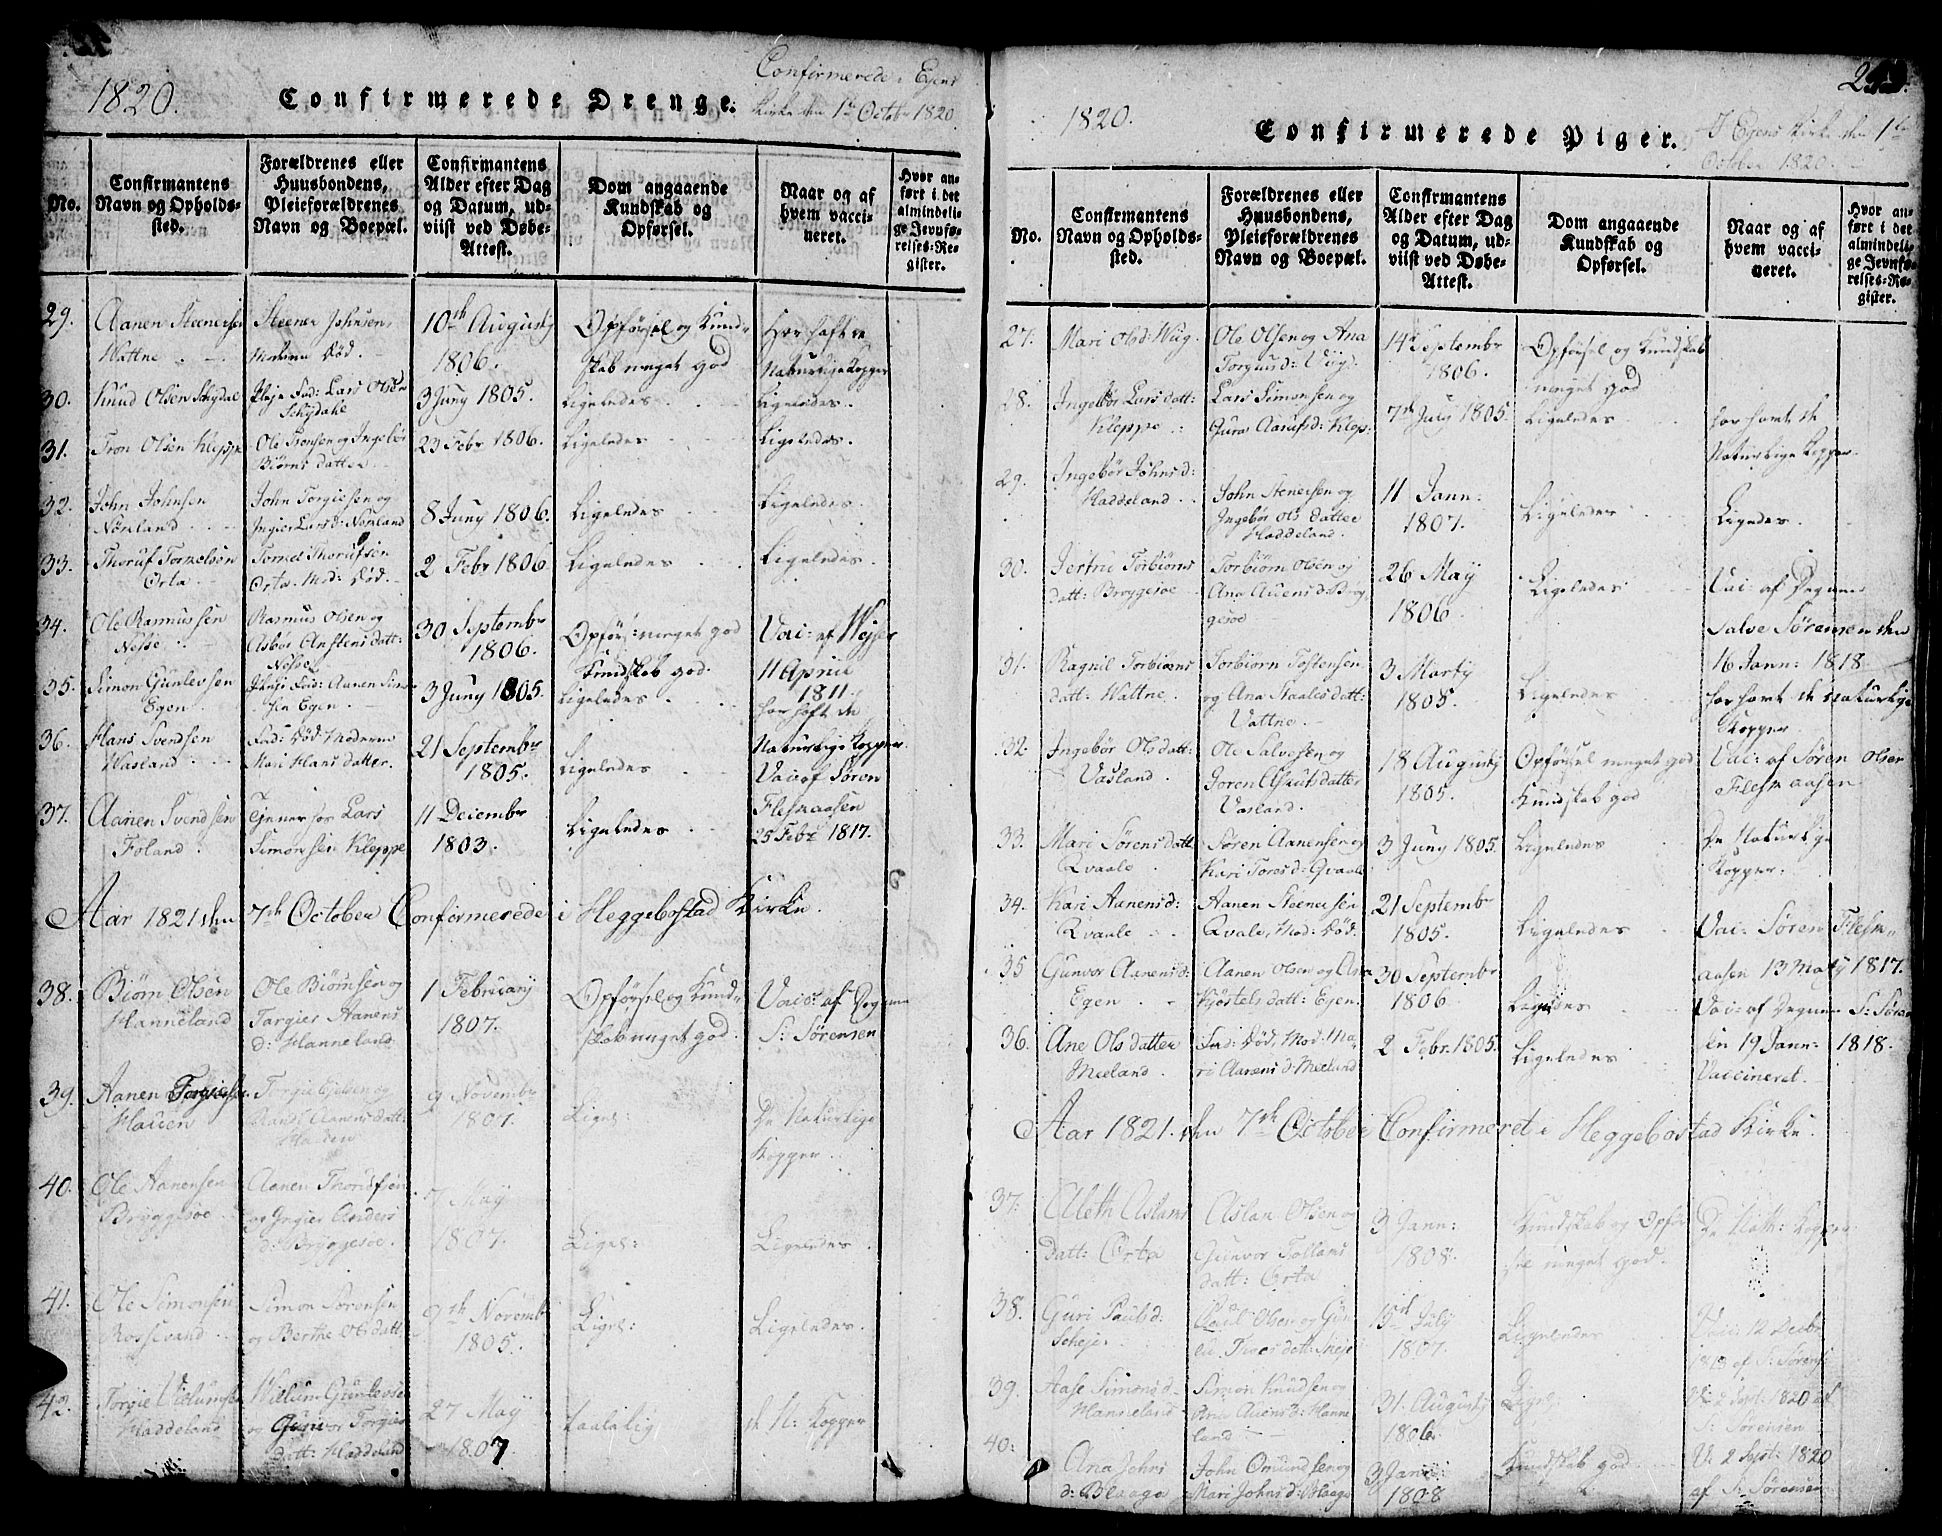 1820.
Confirmerede Drenge.
Confirmerede i Egens
Kirke den 1te Octobr 1820.
No.
Confirmantens
Navn og Opholds-
sted.
Forældrenes eller
Huusbondens,
Pleieforældrenes
Navn og Boepæl.
Confirmantens
Alder efter Dag
og Datum, ud-
viist ved Døbe-
Attest.
Dom angaaende
Kundskab og
Opførsel.
Naar og af
hvem vacci-
neret.
Hvor an-
ført i det
almindeli-
ge Jevnfø-
relses-Re-
gister.
29. Aanen Steenersen
Wattne
Steener Johnsen,
Moderen Død.
10de Augusty
1806.
Opførsel og Kund-
skab meget god
Har hafte
Naturlige Kopper
30. Knud Olsen Schydal
Pleje Fad: Lars Olsen
Schydale
3 Juny 1805.
Ligeledes
Ligeledes.
31. Tron Olsen Kleppe
Ole Tronsen og Ingebör
Biørns datter
23 Febr 1806.
Ligeledes
Ligeledes.
32. John Johnsen
Nörland
John Torgiesen og
Ingier Larsd: Nörland
8 Juny 1806.
Ligeledes
Ligeledes.
33. Thoruf Tormelsön
Orta
Tormel Thorufsen
Orta. Mod: Död.
2 Febr 1806
Ligeledes
Ligeledes.
34. Ole Rasmussen
Nelse
Rasmus Olsen og
Asbör Anstens datt:
Nelse
30 Septembr
1806.
Opförs: meget god
Kundskab god.
Vai: af Wejer
11 April
1811.
35. Simon Gunlevsen
Egen
Pleje Fad: Aanen Simo
sen Egen.
3 Juny 1805.
Ligeledes
har haft de
Naturlige Kopper
36. Hans Svendsen
Wasland
Fad: Död Moderen
Mari Hans datter.
21 Septembr
1805.
Ligeledes
Vai: af Sören
Flesmaasen
25 Febr 1817.
37. Aanen Svendsen
Foland
Tjener for Lars
Simonsen Kleppe
11 Decembr
1803.
Ligeledes
Aar 1821 den 7de October Confirmerede i Heggebostad Kirke.
38. Biörn Olsen
Hanneland
Ole Biörnsen og
Targier Aanens
d: Hanneland
1 February
1807.
Opförsel og Kund-
skab meget god.
Vaic: af Degnen
S: Sörensen
39. Aanen Torgiesen
Hauen
Torgie og
Aanens datt:
Hauen
9 Novembr
1807.
Ligel:
De Naturlige
Kopper
40. Ole Aanensen
Bryggesoe
Aanen Thorufsen
og Ingier Anders
d: Bryggesoe.
7 May
1807.
Ligel:
Ligeledes.
41. Ole Simonsen
Rossevand
Simon Sörensen
og Berthe Olsdatt:
9de Novembr
1805.
Ligel:
Ligeledes.
42. Torgie Wielumsen
Haddeland
Wielum Gunlevsen
og Guner Torgies
datt: Haddeland
27 May
1807
Taalelig
de N: Kopper
1820.
Confirmerede Piger.
I Egens Kirke den 1te
October 1820.
No.
Confirmantens
Navn og Opholds-
sted.
Forældrenes eller
Huusbondens,
Pleieforældrenes
Navn og Boepæl.
Confirmantens
Alder efter Dag
og Datum, ud-
viist ved Døbe-
Attest.
Dom angaaende
Kundskab og
Opførsel.
Naar og af
hvem vacci-
neret.
Hvor an-
ført i det
almindeli-
ge Jevnfø-
relses-Re-
gister.
27. Mari Olsd: Wiig.
Ole Olsen og Ana
Torgiusd: Viig.
14de Septembr
1806.
Opförsel og Kundskab
meget god
28. Ingebör Lars datt:
Kleppe
Lars Simonsen og
Guro Aanusd: Klep:
7de July 1805.
Ligeledes
har havt de
Naturlige Kopper.
29. Ingebör Johnsd:
Haddeland
John Stenersen og
Ingebör Ols datter
Haddeland.
11 Jann:
1807.
Ligeledes
Ligedes.
30. Jertru Torbiörns
datt: Bryggesoe
Torbiörn Olsen og
Ana Auensd: Bryg
gesoe
26 May
1806
Ligeledes
Vai: af Degnen
Salve Sörensen den
16 Jann: 1818
31. Ragnil Torbiörns
datt: Wattne.
Torbiörn Tostensen
og Ana Staales datt:
Vattne.
3 Marty
1805.
Ligeledes
har havt de Naturlige
Kopper
32. Ingebör Ols datt:
Vasland.
Ole Salvesen og
Joren Asluts datter
Vasland.
18 Augusty
1805.
Opførsel meget god
Kundskab god
Vai: af Sören Olsen
Flesmaasen
33. Mari Sörens datt
Qvaale
Sören Aanensen og
Kari Toresd: Qvaale
3 Juny 1805.
Ligeledes
De Naturlige
Kopper.
34. Kari Aanensd:
Qvaale
Aanen Steenersen
Qvale, Mod: Död.
21 Septembr
1805.
Ligeledes
Vai: Sören Flesm-
aasen 13 May 1817.
35 Gunvor Aanensd:
Egen
Aanen Olsen og Ana
Kjöstels datt: Ejen.
30 Septembr
1806
Ligeledes
Vai: af Degnen S: Sören
en 19 Jann: 1818.
36. Ane Ols datter
Mieland.
Fad: Död, Mod: Ma
ri Aanens d: Meeland
2 Febr. 1805.
Ligeledes
Vaccineret.
Aar 1821. den 7de October Confirmeret i Heggebostad Kirke.
37. Aleth Aslans
datt: Orta
Aslan Olsen og
Gunvor Tollans
datt: Orta
3 Jann:
1808.
Kundskab og Opför
sel meget god.
De Nath: Kopper
38. Guri Paulsd:
Scheje
Paul Olsen og Gun
Tores datt: Skeje
15de July
1807.
Ligeledes
Vai: 12 Decbr
af S: Sörens
39. Aase Simonsd
Hanneland
Simon Knudsen og
Ana Auensd: Hanne
land
31. Augusty
1806.
Ligel:
V: 2 Sept: 1820 af
S: Sörensen
40: Ana Johns
d: Blaage
John Omundsen og
Mari Johns d: Blaage
3 Jan:
1808
Kundskab god
V: 2 Sept: 1820
af S: Sörensen